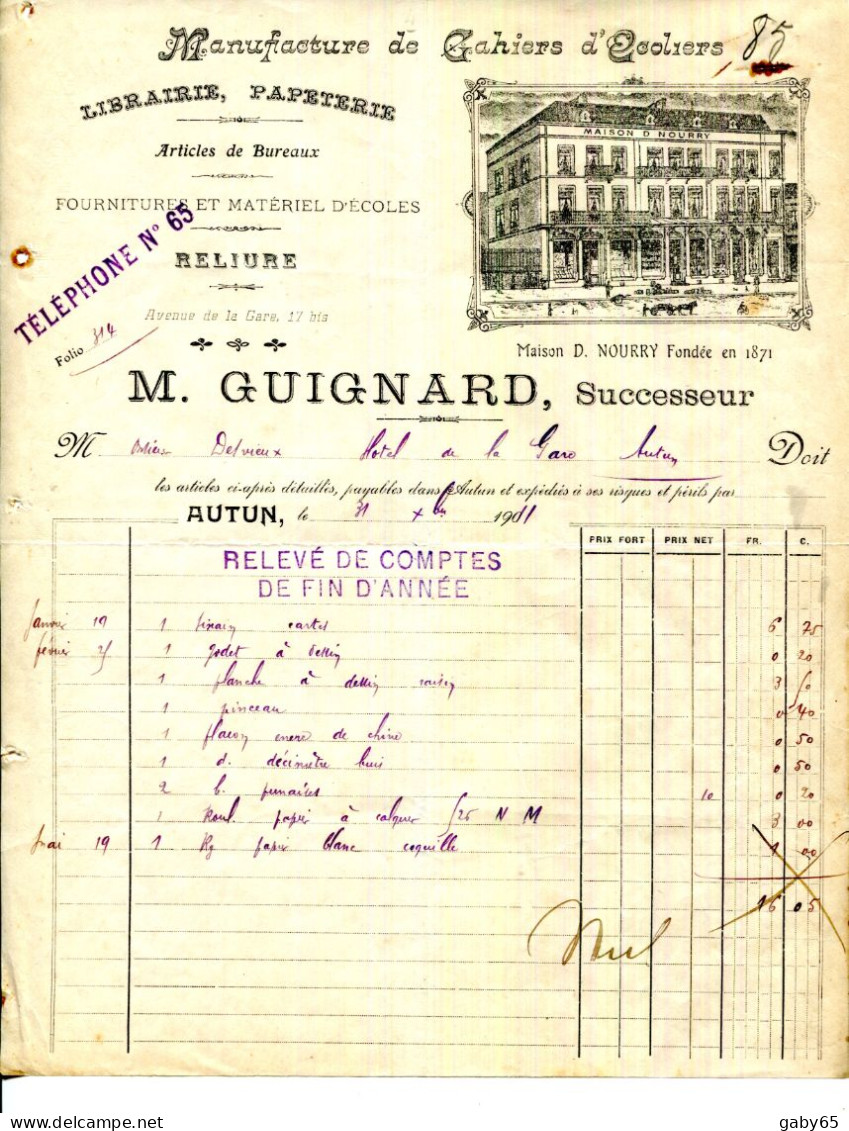 Manufacture de Cahiers d'Ecoliers 85
LIBRAIRIE, PAPETERIE
Articles de Bureaux
FOURNITURES ET MATÉRIEL D'ÉCOLES
RELIURE
TÉLÉPHONE N° 65
Avenue de la Gare, 17 bis
Folio 314
MAISON D NOURRY
Maison D. NOURRY Fondée en 1871
M. GUIGNARD, Successeur
M Delvieux Hotel de la Gare Autun Doit
les articles ci-après détaillés, payables dans Autun et expédiés à ses risques et périls par
AUTUN, le 31 Xbre 1911
PRIX FORT PRIX NET FR. C.
RELEVÉ DE COMPTES
DE FIN D'ANNÉE
Janvier 19 1 cartes 6 75
février 25 1 godet à dessin 0 20
1 planche à dessin raisin 3 50
1 pinceau 0 40
1 flacon encre de chine 0 50
1 d. décimètre buis 0 50
2 b. punaises 10 0 20
1 Roul. papier à calquer 125 N M 3 00
Mai 19 1 Kg papier blanc coquille 1 00
16 05
gaby65